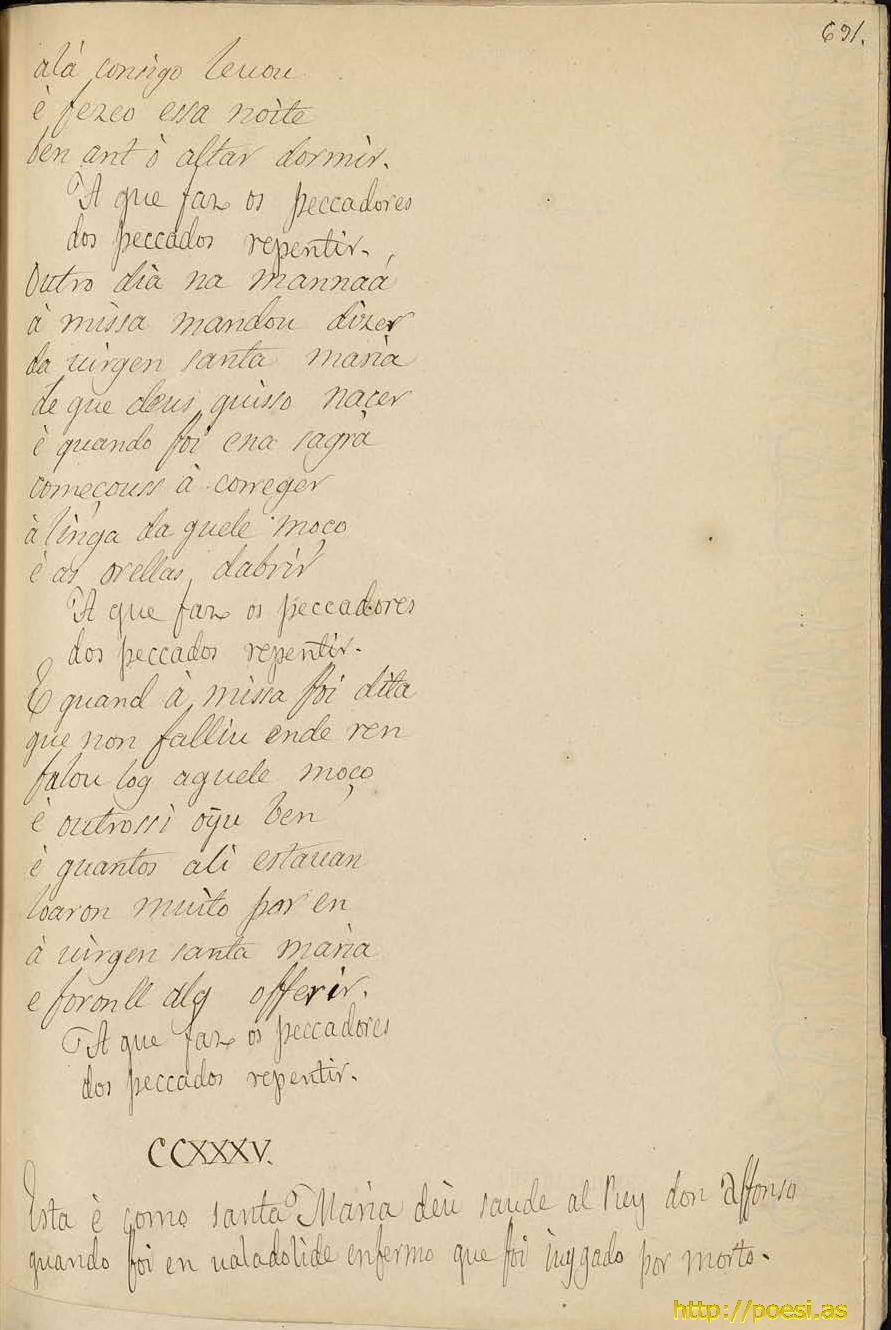 691.
alá consigo leuou
è fezeo essa noite
ben ant ò altar dormir.
A que faz os peccadores
dos peccados repentir.
Outro dià na mannaá
à missa mandou dizer
da uirgen santa maria
de que deus quisso naçer
è quando foi ena sagrà
começouss à correger
à linga daquele moço
è as orellas dabrir
A que faz os peccadores
dos peccados repentir.
E quand à missa foi dita
que non falliu ende ren
falou log aquele moço
è outrossi oyu ben
è quantos ali estauan
loaron muito por en
à uirgen santa maria
e foronll alg offerir.
A que faz os peccadores
dos peccados repentir.
CCXXXV.
Esta è como santa Maria deu saude al Rey don Affonso
quando foi en ualadolide enfermo que foi iuygado por morto.
http://poesi.as